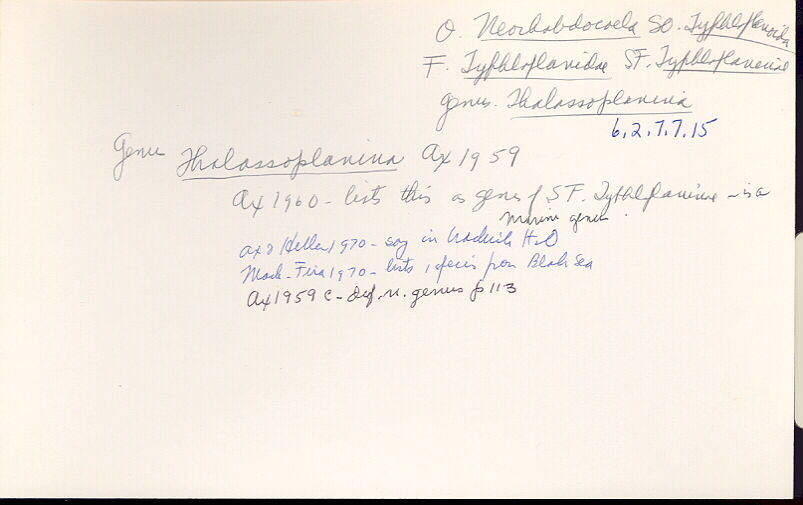 O. Neorhabdocoela SO. Typhloplanoida
F. Typhloplanidae SF. Typhloplaninae
genus. Thalassoplanina
6.2.7.7.15
Genus Thalassoplanina Ax 1959
Ax 1960 - lists this as genus of SF. Typhloplaninae - is a
marine genus.
Ax & Heller 1970 - say in brackish H2O
Mack-Fira 1970 - lists 1 species from Black Sea
Ax 1959 c - Def. n. genus p 113